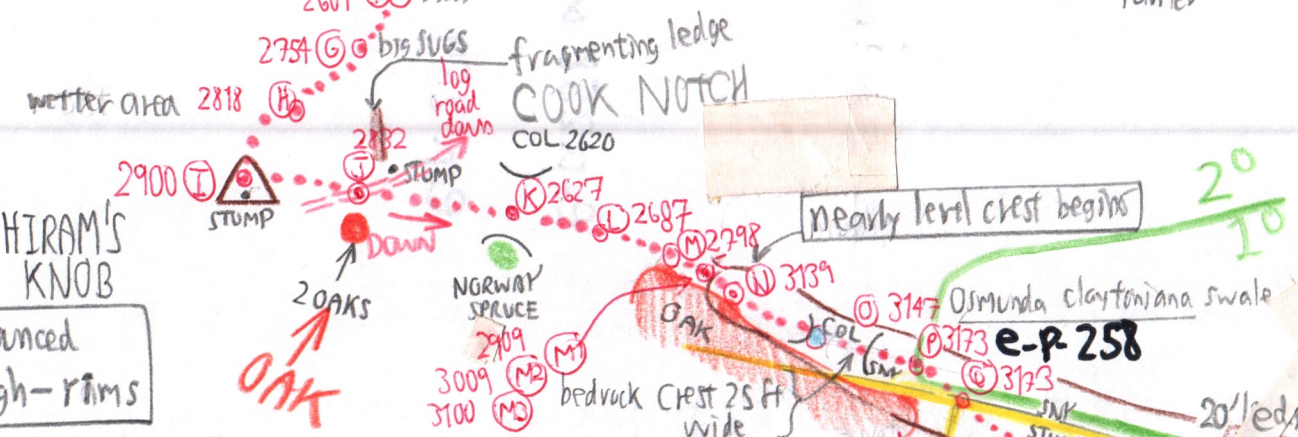 2754 G big SUGS
fragmenting ledge
wetter area 2818 H
log
road
down
COOK NOTCH
COL 2620
J
STUMP
2900 I
STUMP
K 2627
L 2687
M 2798
nearly level crest begins
20
10
HIRAM'S
KNOB
DOWN
2 OAKS
OAK
NORWAY
SPRUCE
N 3139
OAK
O 3147
Osmunda claytoniana swale
COL
P 3173 e-p-258
2909 M1
3009 M2
3100 M3
SNK
Q 3173
bedrock crest 25 ft
wide
SNK
20' ledg
anced
gh-rims